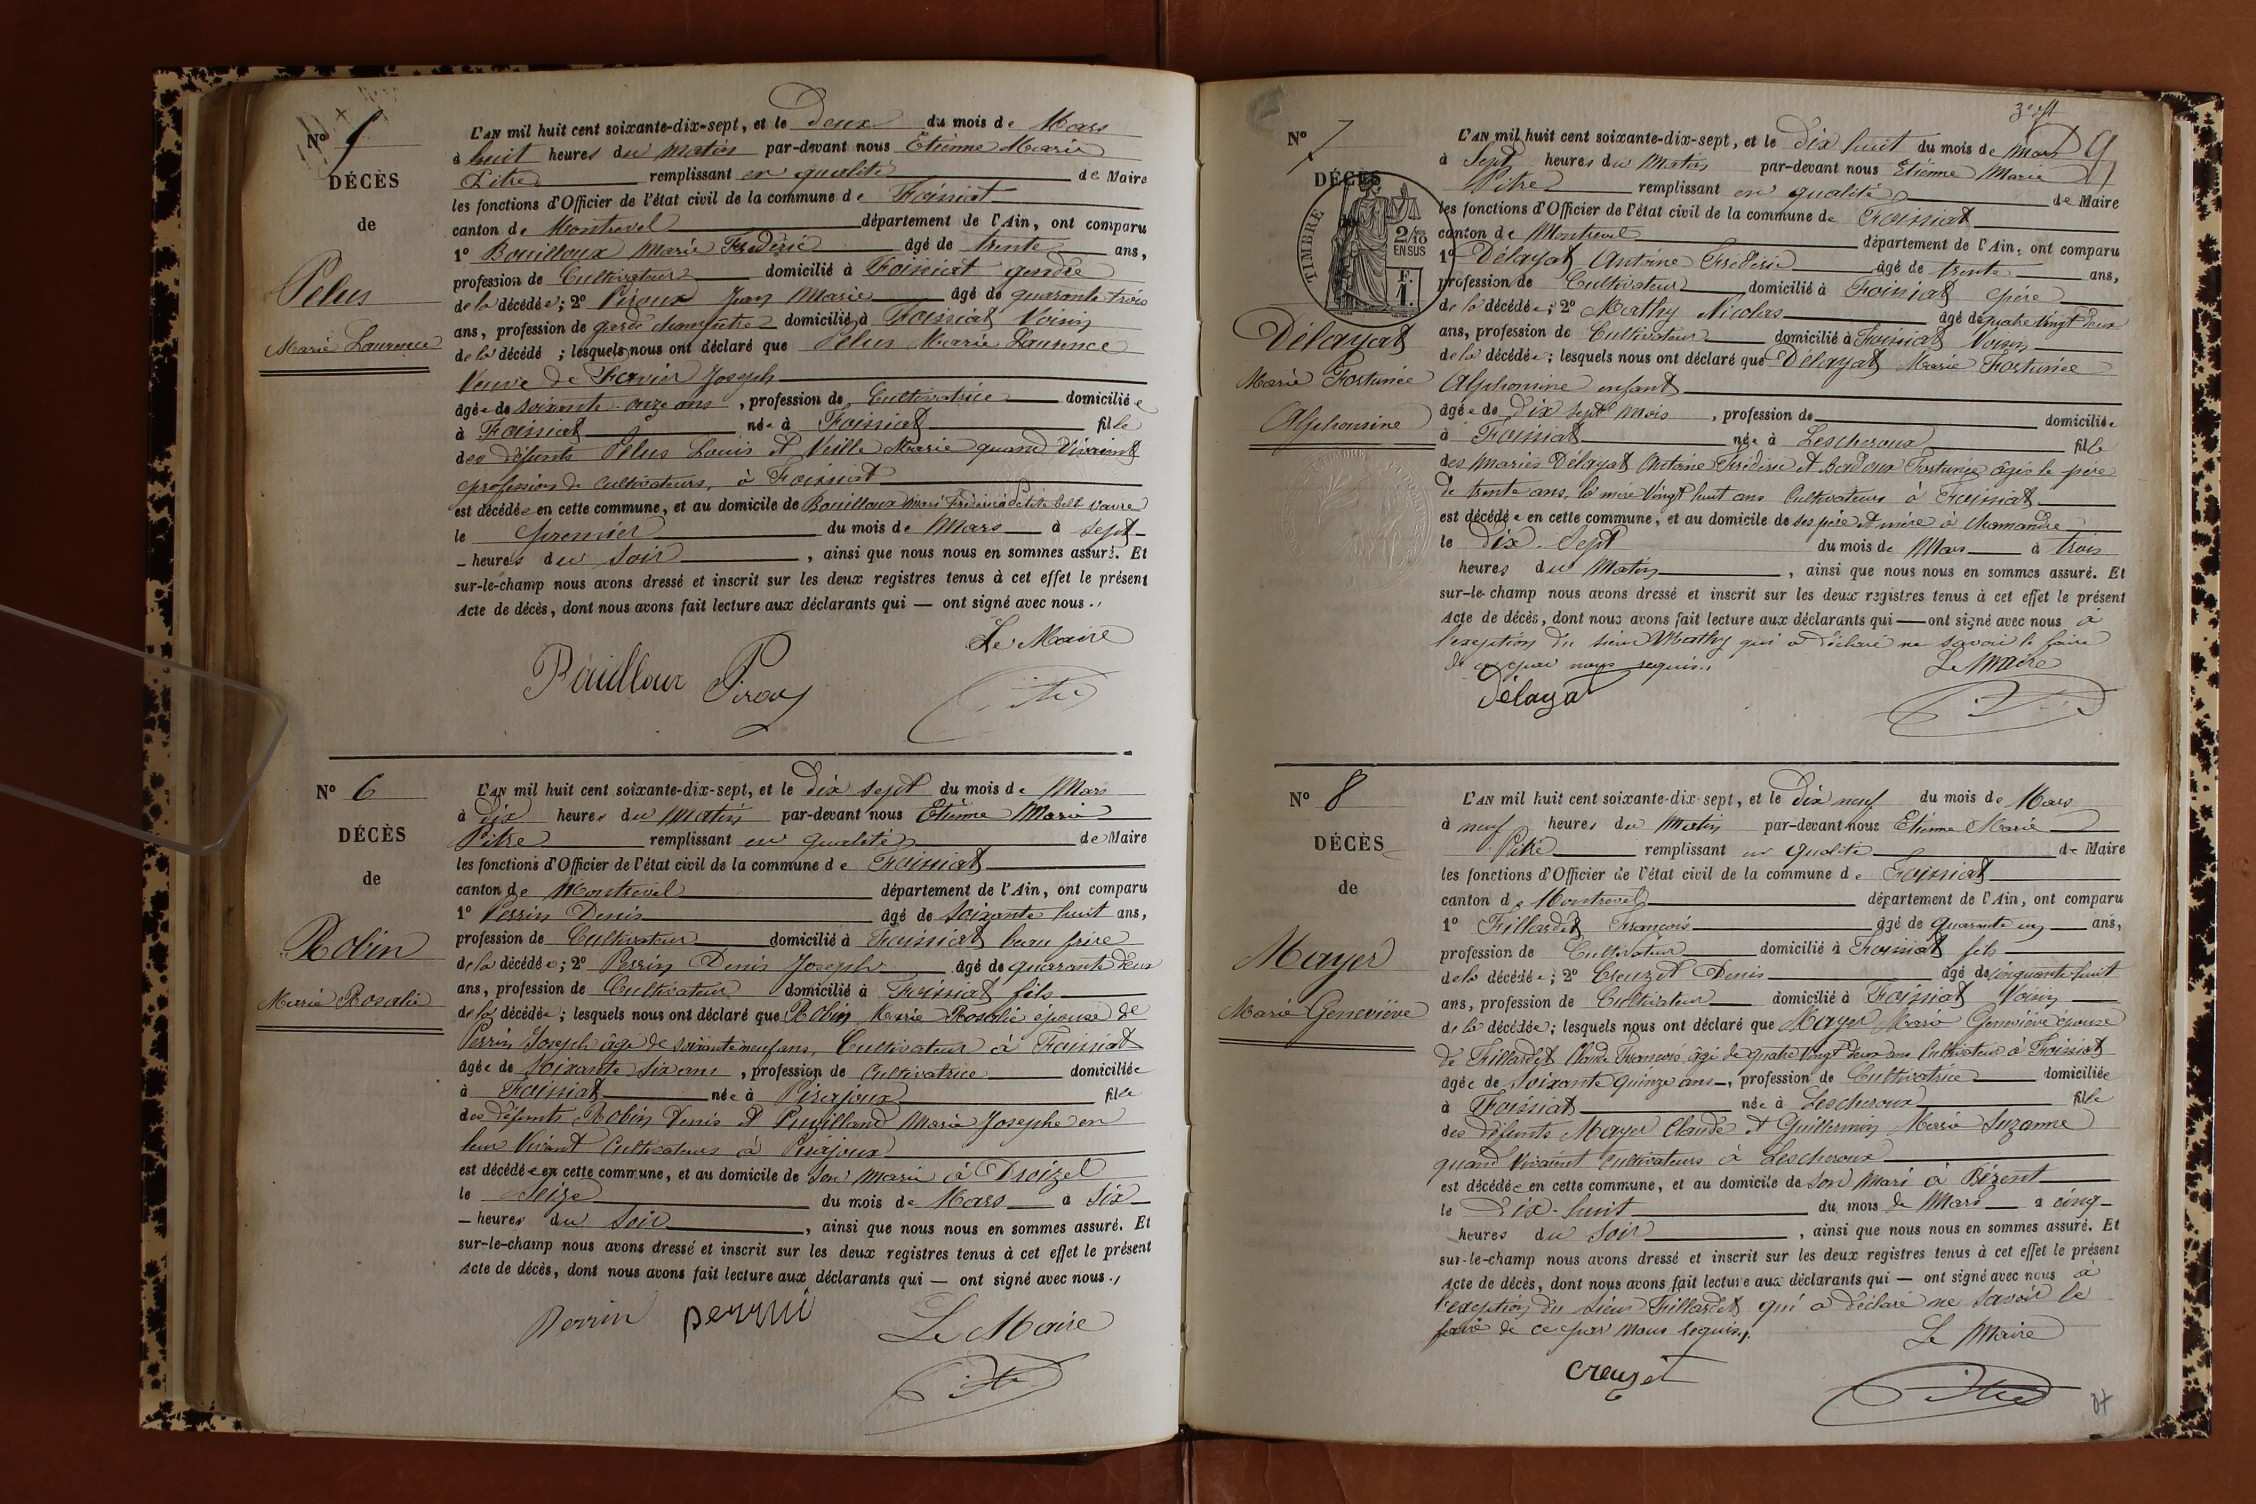 Nº 5
DÉCÈS
de
Pelus
Marie Laurence
L'AN mil huit cent soixante-dix-sept, et le Deux du mois de Mars
à huit heures du matin par-devant nous Etienne Marie
Pitre remplissant en qualité de Maire
les fonctions d'Officier de l'état civil de la commune de Foissiat
canton de Montrevel département de l'Ain, ont comparu
1º Bouilloux Marie Frédéric âgé de trente ans,
profession de Cultivateur domicilié à Foissiat gendre
de la décédée; 2º Piroux Jean Marie âgé de quarante trois
ans, profession de garde champêtre domicilié à Foissiat Voisin
de la décédé ; lesquels nous ont déclaré que Pelus Marie Laurence
Veuve de Favier Joseph
âgée de soixante onze ans, profession de Cultivatrice domiciliée
à Foissiat née à Foissiat fille
des défunts Pelus Louis et Veille Marie quand Vivaient
profession de cultivateurs, à Foissiat
est décédée en cette commune, et au domicile de Bouilloux Marie Frédéric
le premier du mois de Mars à sept
heures du soir, ainsi que nous nous en sommes assuré. Et
sur-le-champ nous avons dressé et inscrit sur les deux registres tenus à cet effet le présent
Acte de décès, dont nous avons fait lecture aux déclarants qui — ont signé avec nous.
Le Maire
Bouilloux Piroux Pitre
Nº 6
DÉCÈS
de
Robin
Marie Rosalie
L'AN mil huit cent soixante-dix-sept, et le Dix sept du mois de Mars
à Dix heures du matin par-devant nous Etienne Marie
Pitre remplissant en qualité de Maire
les fonctions d'Officier de l'état civil de la commune de Foissiat
canton de Montrevel département de l'Ain, ont comparu
1º Perrin Denis âgé de Soixante huit ans,
profession de Cultivateur domicilié à Foissiat beau frère
de la décédée; 2º Perrin Denis Joseph âgé de quarante deux
ans, profession de Cultivateur domicilié à Foissiat fils
de la décédée; lesquels nous ont déclaré que Robin Marie Rosalie épouse de
Perrin Joseph âgé de soixante neuf ans, Cultivateur à Foissiat
âgée de Soixante six ans, profession de Cultivatrice domiciliée
à Foissiat née à Pirajoux fille
des défunts Robin Denis et Puvilland Marie Josephe en
leur Vivant Cultivateurs à Pirajoux
est décédée en cette commune, et au domicile de Son Marie à Troizel
le Seize du mois de Mars à Six
heures du Soir, ainsi que nous nous en sommes assuré. Et
sur-le-champ nous avons dressé et inscrit sur les deux registres tenus à cet effet le présent
Acte de décès, dont nous avons fait lecture aux déclarants qui — ont signé avec nous.
Perrin perrin Le Maire
Pitre
Nº 7
DÉCÈS
TIMBRE
2/10 EN SUS
F. 1.
Délayat
Marie Fortunée
Alphonsine
L'AN mil huit cent soixante-dix-sept, et le Dix huit du mois de Mars
à Sept heures du Matin par-devant nous Etienne Marie
Pitre remplissant en qualité de Maire
les fonctions d'Officier de l'état civil de la commune de Foissiat
canton de Montrevel département de l'Ain, ont comparu
1º Délayat Antoine Frédéric âgé de trente ans,
profession de Cultivateur domicilié à Foissiat père
de la décédée; 2º Mathy Nicolas âgé de quatre vingt deux
ans, profession de Cultivateur domicilié à Foissiat Voisin
de la décédée; lesquels nous ont déclaré que Délayat Marie Fortunée
Alphonsine enfant
âgée de Dix sept mois, profession de domiciliée
à Foissiat née à Lescheroux fille
des Mariés Délayat Antoine Frédéric et Fortunée âgés le père
de trente ans, la mère Vingt huit ans Cultivateurs à Foissiat
est décédée en cette commune, et au domicile de ses père et mère à Chamandre
le Dix Sept du mois de Mars à trois
heures du Matin, ainsi que nous nous en sommes assuré. Et
sur-le-champ nous avons dressé et inscrit sur les deux registres tenus à cet effet le présent
Acte de décès, dont nous avons fait lecture aux déclarants qui — ont signé avec nous à
l'exeption du sieur Mathy qui a déclaré ne savoir le faire
de ce par nous requis.
Le Maire
Délayat Pitre
Nº 8
DÉCÈS
de
Mayer
Marie Geneviève
L'AN mil huit cent soixante-dix-sept, et le Dix neuf du mois de Mars
à neuf heures du Matin par-devant nous Etienne Marie
Pitre remplissant en qualité de Maire
les fonctions d'Officier de l'état civil de la commune de Foissiat
canton de Montrevel département de l'Ain, ont comparu
1º Frillardet François âgé de quarante un ans,
profession de Cultivateur domicilié à Foissiat fils
de la décédée; 2º Creuzet Denis âgé de cinquante huit
ans, profession de Cultivateur domicilié à Foissiat Voisin
de la décédée; lesquels nous ont déclaré que Mayer Marie Geneviève épouse
de Frillardet Claude François âgé de quatre vingt deux ans Cultivateur à Foissiat
âgée de soixante quinze ans, profession de Cultivatrice domiciliée
à Foissiat née à Lescheroux fille
des défunts Mayer Claude et Guillermin Marie Suzanne
quand vivaient cultivateurs à Lescheroux
est décédée en cette commune, et au domicile de Son Mari à Bézent
le Dix-huit du mois de Mars à cinq
heures du Soir, ainsi que nous nous en sommes assuré. Et
sur-le-champ nous avons dressé et inscrit sur les deux registres tenus à cet effet le présent
Acte de décès, dont nous avons fait lecture aux déclarants qui — ont signé avec nous à
l'exeption du sieur Frillardet qui a déclaré ne savoir le
faire de ce par nous requis.
Le Maire
creuzet Pitre